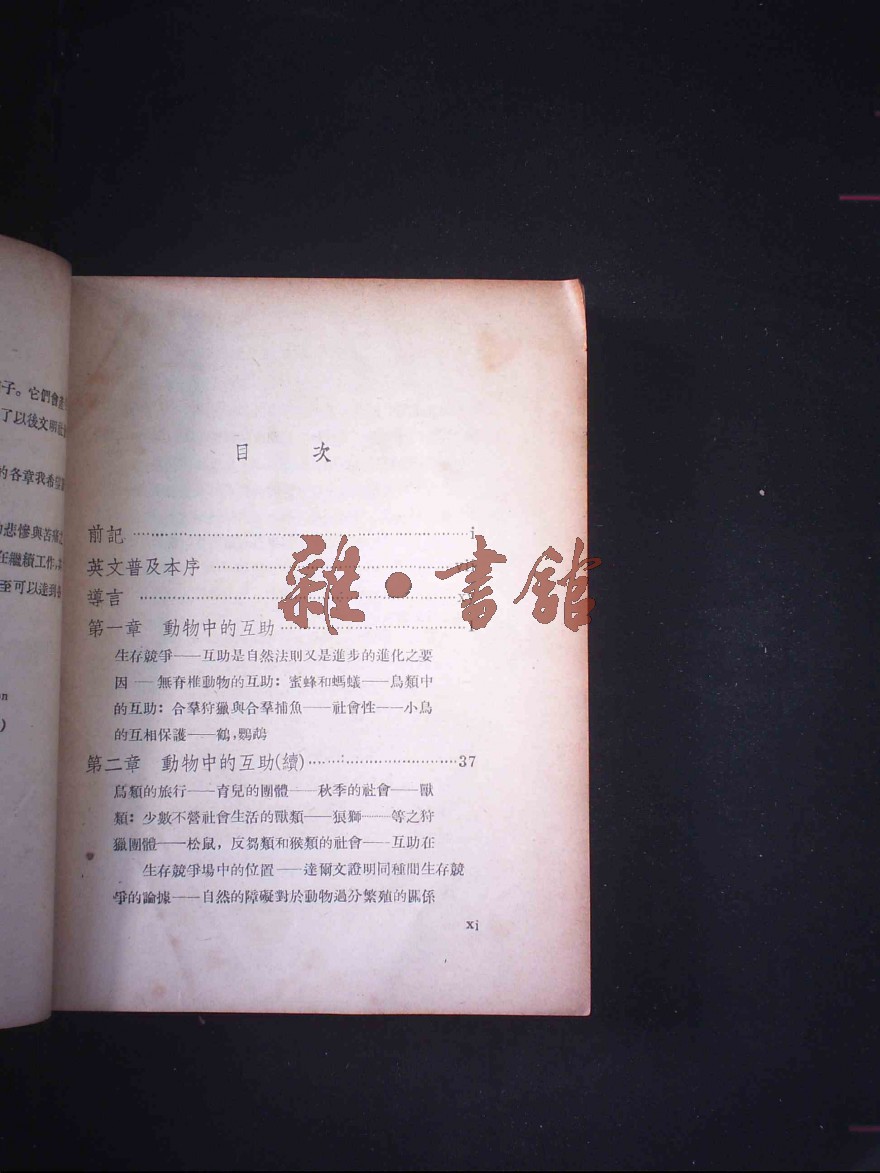 子。它們會
了以後文明社
的各章我希望
悲慘與苦痛之
在繼續工作,
至可以達到
n
)
目 次
前記 i
英文普及本序
導言
第一章 動物中的互助
生存競爭——互助是自然法則又是進步的進化之要
因——無脊椎動物的互助：蜜蜂和螞蟻——鳥類中
的互助：合羣狩獵與合羣捕魚——社會性——小鳥
的互相保護——鶴，鸚鵡
第二章 動物中的互助(續) 37
鳥類的旅行——育兒的團體——秋季的社會——獸
類：少數不營社會生活的獸類——狼獅——等之狩
獵團體——松鼠，反芻類和猴類的社會——互助在
生存競爭場中的位置——達爾文證明同種間生存競
爭的論據——自然的障礙對於動物過分繁殖的關係
xi
雜·書館